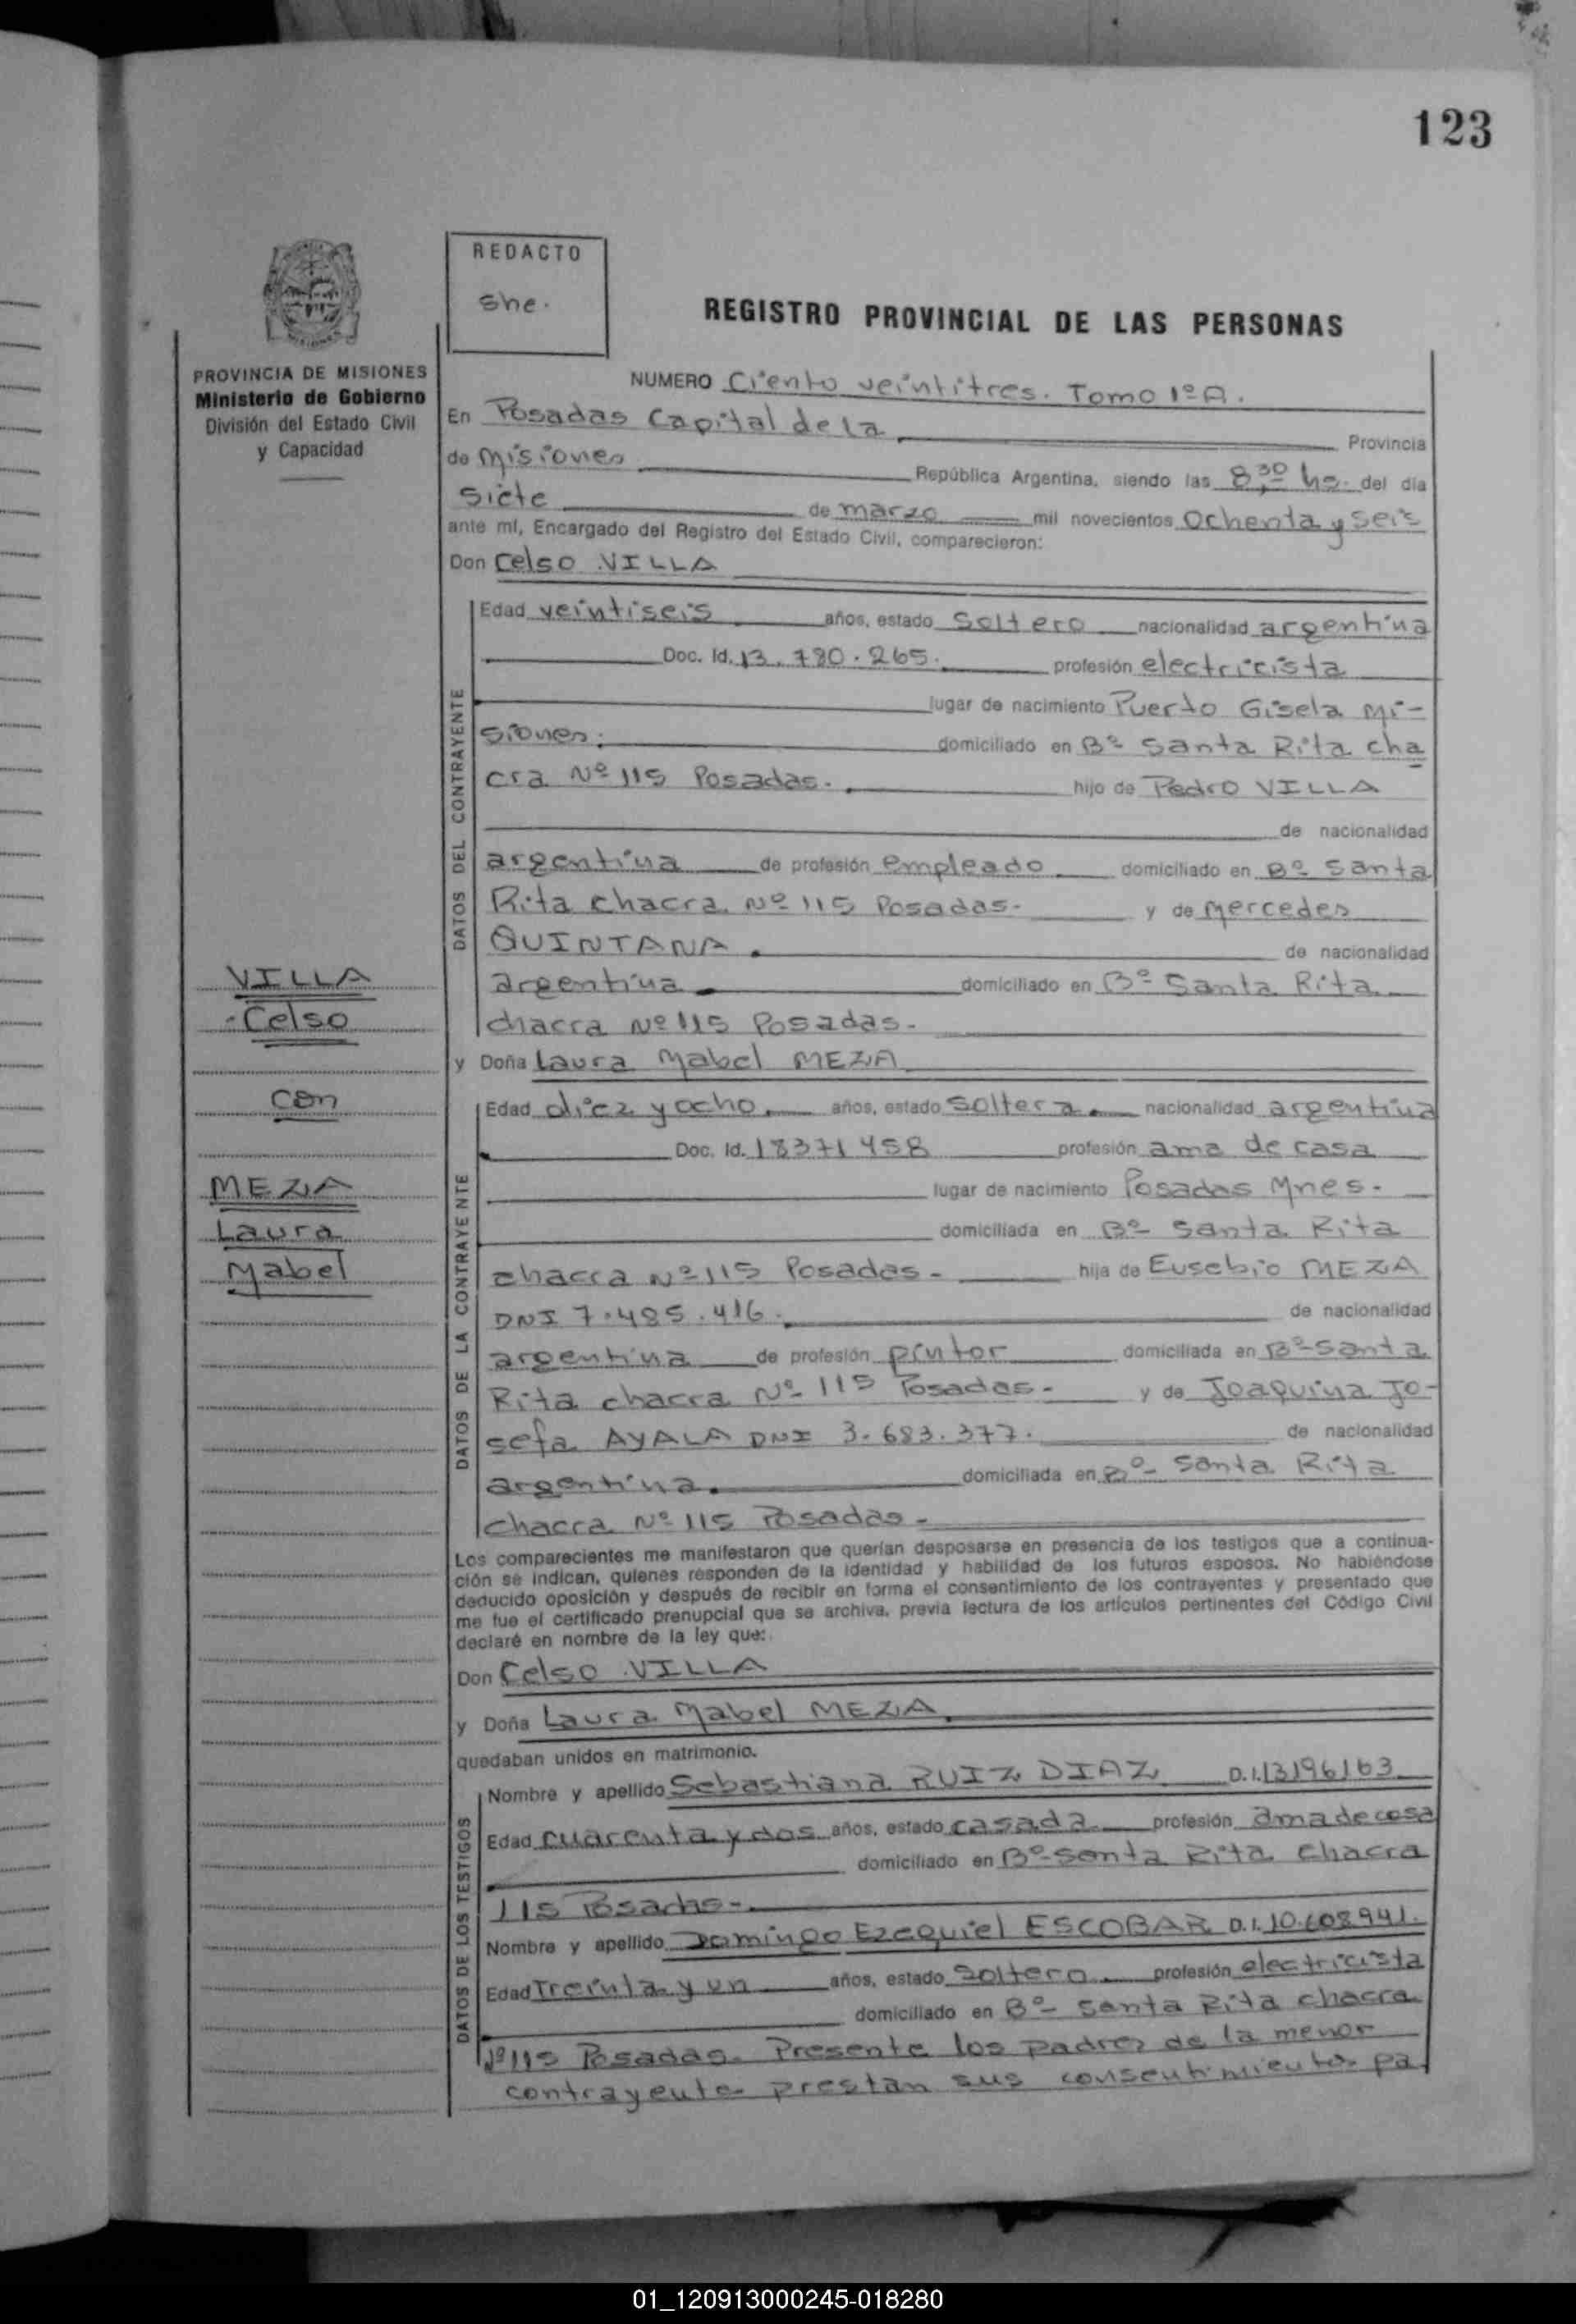 123
REDACTO
She.
REGISTRO PROVINCIAL DE LAS PERSONAS
PROVINCIA DE MISIONES
Ministerio de Gobierno
División del Estado Civil
y Capacidad
NUMERO Ciento veintitres. Tomo 1º A.
En Posadas Capital de la Provincia
de Misiones República Argentina, siendo las 8,30 hs. del día
Siete de marzo mil novecientos Ochenta y Seis
ante mí, Encargado del Registro del Estado Civil, comparecieron:
Don Celso VILLA
DATOS DEL CONTRAYENTE
Edad veintiseis años, estado Soltero nacionalidad argentina
Doc. Id. 13.780.265. profesión electricista
lugar de nacimiento Puerto Gisela Mi-
siones. domiciliado en Bº Santa Rita cha
cra Nº 115 Posadas. hijo de Pedro VILLA
de nacionalidad
argentina de profesión empleado domiciliado en Bº Santa
Rita chacra Nº 115 Posadas- y de Mercedes
QUINTANA. de nacionalidad
argentina domiciliado en Bº Santa Rita
chacra Nº 115 Posadas-
y Doña Laura Mabel MEZA
DATOS DE LA CONTRAYENTE
Edad diez y ocho años, estado Soltera nacionalidad argentina
Doc. Id. 18371458 profesión ama de casa
lugar de nacimiento Posadas Mnes-
domiciliada en Bº Santa Rita
chacra Nº 115 Posadas- hija de Eusebio MEZA
DNI 7.485.416. de nacionalidad
argentina de profesión pintor domiciliada en Bº Santa
Rita chacra Nº 115 Posadas- y de Joaquina Jo-
sefa AYALA DNI 3.683.377. de nacionalidad
argentina domiciliada en Bº Santa Rita
chacra Nº 115 Posadas-
Los comparecientes me manifestaron que querían desposarse en presencia de los testigos que a continua-
ción se indican, quienes responden de la identidad y habilidad de los futuros esposos. No habiéndose
deducido oposición y después de recibir en forma el consentimiento de los contrayentes y presentado que
me fue el certificado prenupcial que se archiva, previa lectura de los artículos pertinentes del Código Civil
declaré en nombre de la ley que:
Don Celso VILLA
y Doña Laura Mabel MEZA
quedaban unidos en matrimonio.
DATOS DE LOS TESTIGOS
Nombre y apellido Sebastiana RUIZ DIAZ D.I.13196163
Edad cuarenta y dos años, estado casada profesión ama de casa
domiciliado en Bº Santa Rita Chacra
115 Posadas-
Nombre y apellido Domingo Ezequiel ESCOBAR D.I.10.608941.
Edad Treinta y un años, estado Soltero profesión electricista
domiciliado en Bº Santa Rita chacra
Nº 115 Posadas. Presente los padres de la menor
contrayente prestan sus consentimiento pa
VILLA
Celso
con
MEZA
Laura
Mabel
01_120913000245-018280